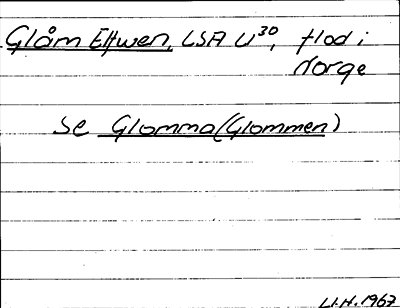 Glåm Elfwen, LSA U³⁰, flod i
Norge
Se Glomma (Glommen)
U.H. 1967